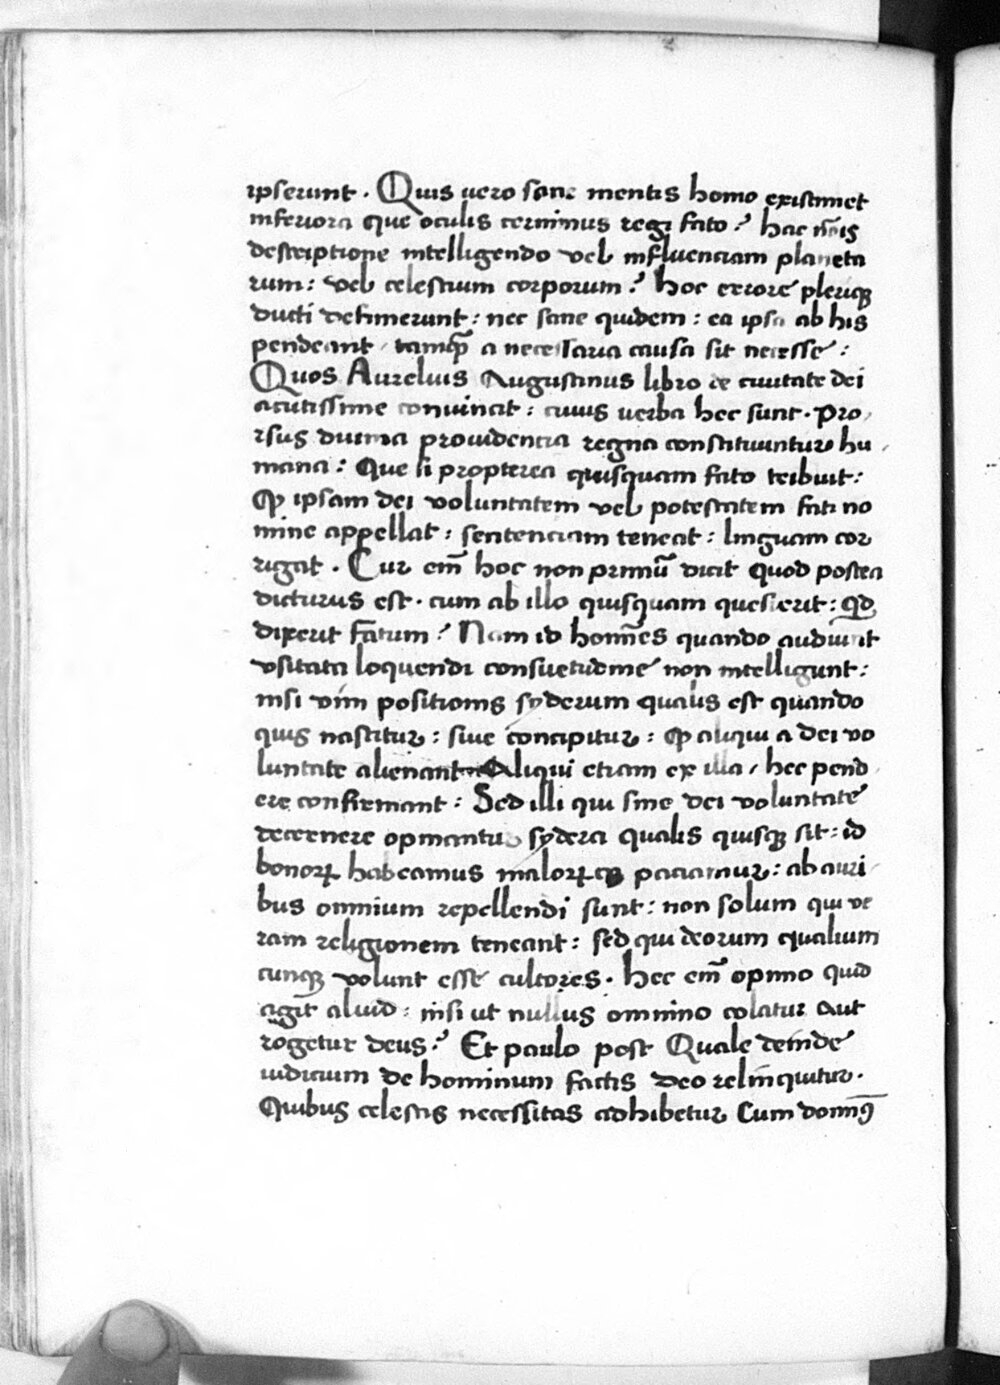 ipserunt . Quis uero sane mentis homo existimet
inferiora que oculis cernimus regi fato ? hac nōis
descriptione intelligendo vel influenciam planeta
rum : vel celestium corporum ? hoc errore pleriqꝫ
ducti definierunt : nec sane quidem : ea ipsa ab his
pendeant / tamqꝫ a necessaria causa sit necesse :
Quos Aurelius Augustinus libro de ciuitate dei
acutissime conuincit : cuius uerba hec sunt . Pro,
rsus diuina prouidentia regna constituuntur hu,
mana : Que si propterea quisquam fato tribuit :
Qꝫ ipsam dei voluntatem vel potestatem fati no
mine appellat : sentenciam teneat : linguam cor
rigat . Cur em̄ hoc non primū dicit quod postea
dicturus est . cum ab illo quisquam quesierit : qd
dixerit fatum ? Nam id homines quando audiunt
vsitata loquendi consuetudine non intelligunt :
nisi vim positionis syderum qualis est quando
quis nascitur : siue concipitur : Qꝫ aliqui a dei vo
luntate alienant Aliqui etiam ex illa / hec pend,
ere confirmant : Sed illi qui sine dei voluntate
decernere opinantur sydera qualis quisqꝫ sit : id
bonorꝝ habeamus malorꝝ paciamur : ab auri,
bus omnium repellendi sunt : non solum qui ve
ram religionem teneant : sed qui deorum qualium
cunqꝫ volunt esse cultores . hec em̄ opinio quid
agit aliud : nisi ut nullus omnino colatur aut
rogetur deus ? Et paulo post Quale deinde
iudicium de hominum factis deo relinquitur .
Quibus celestis necessitas adhibetur Cum dominꝰ